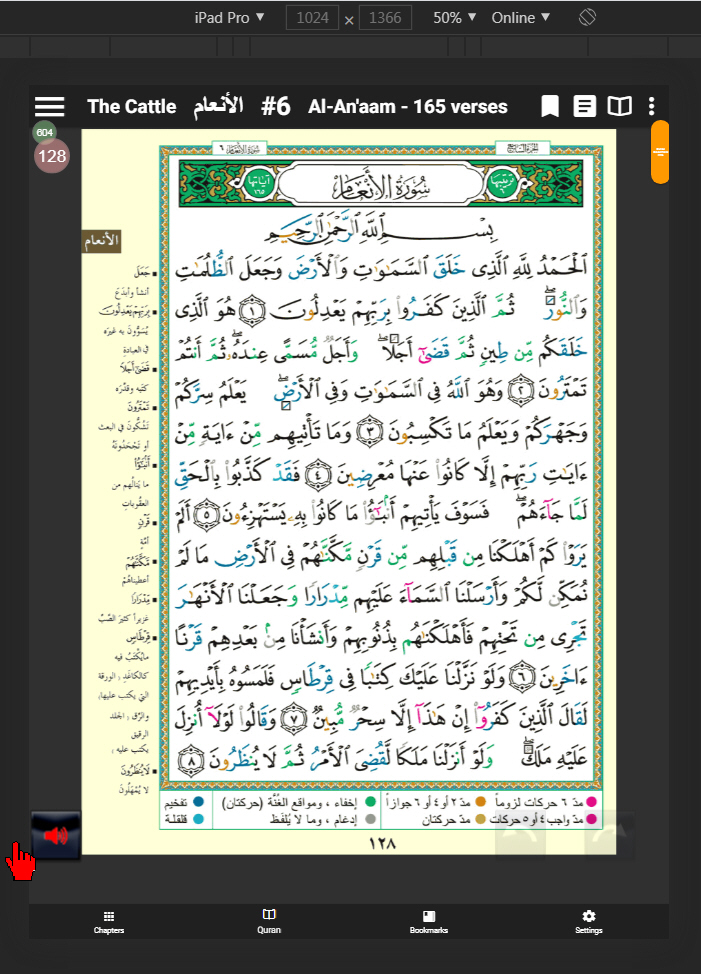 iPad Pro ▼ 1024 × 1366 50% ▼ Online ▼
The Cattle الأنعام #6 Al-An'aam - 165 verses
604
128
سُورَةُ الأَنْعَامِ ٦
الجزء السابع
ترتيبها ٦ سُورَةُ الأَنْعَامِ آياتها ١٦٥
بِسْمِ اللَّهِ الرَّحْمَٰنِ الرَّحِيمِ
الْحَمْدُ لِلَّهِ الَّذِى خَلَقَ السَّمَٰوَٰتِ وَالْأَرْضَ وَجَعَلَ الظُّلُمَٰتِ
وَالنُّورَ ۖ ثُمَّ الَّذِينَ كَفَرُوا بِرَبِّهِمْ يَعْدِلُونَ ١ هُوَ الَّذِى
خَلَقَكُم مِّن طِينٍ ثُمَّ قَضَىٰٓ أَجَلًا ۖ وَأَجَلٌ مُّسَمًّى عِندَهُۥ ۖ ثُمَّ أَنتُمْ
تَمْتَرُونَ ٢ وَهُوَ اللَّهُ فِى السَّمَٰوَٰتِ وَفِى الْأَرْضِ ۖ يَعْلَمُ سِرَّكُمْ
وَجَهْرَكُمْ وَيَعْلَمُ مَا تَكْسِبُونَ ٣ وَمَا تَأْتِيهِم مِّنْ ءَايَةٍ مِّنْ
ءَايَٰتِ رَبِّهِمْ إِلَّا كَانُوا عَنْهَا مُعْرِضِينَ ٤ فَقَدْ كَذَّبُوا بِالْحَقِّ
لَمَّا جَآءَهُمْ ۖ فَسَوْفَ يَأْتِيهِمْ أَنۢبَٰٓؤُا مَا كَانُوا بِهِۦ يَسْتَهْزِءُونَ ٥ أَلَمْ
يَرَوْا كَمْ أَهْلَكْنَا مِن قَبْلِهِم مِّن قَرْنٍ مَّكَّنَّٰهُمْ فِى الْأَرْضِ مَا لَمْ
نُمَكِّن لَّكُمْ وَأَرْسَلْنَا السَّمَآءَ عَلَيْهِم مِّدْرَارًا وَجَعَلْنَا الْأَنْهَٰرَ
تَجْرِى مِن تَحْتِهِمْ فَأَهْلَكْنَٰهُم بِذُنُوبِهِمْ وَأَنشَأْنَا مِنۢ بَعْدِهِمْ قَرْنًا
ءَاخَرِينَ ٦ وَلَوْ نَزَّلْنَا عَلَيْكَ كِتَٰبًا فِى قِرْطَاسٍ فَلَمَسُوهُ بِأَيْدِيهِمْ
لَقَالَ الَّذِينَ كَفَرُوٓا إِنْ هَٰذَآ إِلَّا سِحْرٌ مُّبِينٌ ٧ وَقَالُوا لَوْلَآ أُنزِلَ
عَلَيْهِ مَلَكٌ ۖ وَلَوْ أَنزَلْنَا مَلَكًا لَّقُضِىَ الْأَمْرُ ثُمَّ لَا يُنظَرُونَ ٨
الأنعام
جَعَلَ
أنشأ وأبدع
بِرَبِّهِمْ يَعْدِلُونَ
يُسَوُّون به غيرَه
في العبادة
قَضَىٰ أَجَلًا
كتبه وقدَّره
تَمْتَرُونَ
تَشُكُّون في البعث
أو تَجْحَدُونَهُ
أَنْبَٰٓؤُا
ما ينالهم من
العقوبات
قَرْنٍ
أمَّةٍ
مَكَّنَّٰهُمْ
أعطيناهُمْ
مِدْرَارًا
غزيراً كثيرَ الصَّبِّ
قِرْطَاسٍ
ما يُكْتَبُ فيه
كالكاغَدِ (الورقة
التي يكتب عليها)
والرَّقِّ (الجلد
الرقيق
يكتب عليه)
لَا يُنظَرُونَ
لا يُمْهَلُونَ
مدّ ٦ حركات لزوماً مدّ ٢ أو ٤ أو ٦ جوازاً إخفاء ، ومواقع الغُنَّة (حركتان) تفخيم
مدّ واجب ٤ أو ٥ حركات مدّ حركتان إدغام ، وما لا يُلفَظ قلقلة
١٢٨
Chapters Quran Bookmarks Settings